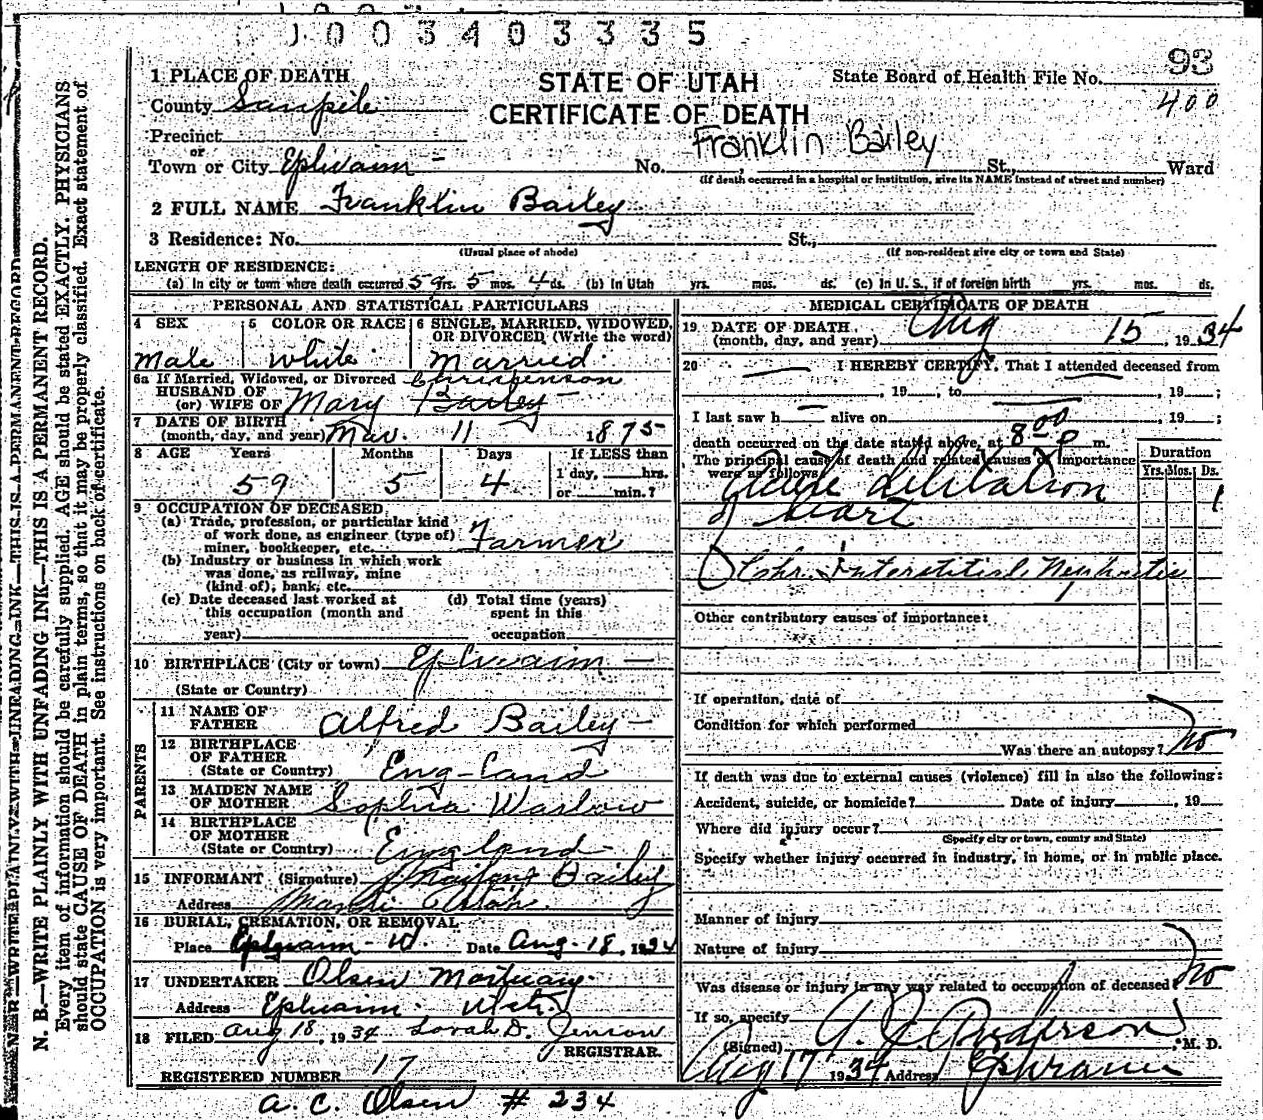 0 0 3 4 0 3 3 3 5
93
1 PLACE OF DEATH
STATE OF UTAH
State Board of Health File No.
400
County Sanpete
CERTIFICATE OF DEATH
Precinct
Franklin Bailey
or
Town or City Ephraim No. St., Ward
(If death occurred in a hospital or institution, give its NAME instead of street and number)
2 FULL NAME Franklin Bailey
3 Residence: No. St.,
(Usual place of abode) (If non-resident give city or town and State)
LENGTH OF RESIDENCE:
(a) In city or town where death occurred 59 yrs. 5 mos. 4 ds. (b) In Utah yrs. mos. ds. (c) In U. S., if of foreign birth yrs. mos. ds.
PERSONAL AND STATISTICAL PARTICULARS
4 SEX 5 COLOR OR RACE 6 SINGLE, MARRIED, WIDOWED, OR DIVORCED (Write the word)
Male White Married
6a If Married, Widowed, or Divorced Christenson
HUSBAND OF
(or) WIFE OF Mary Bailey
7 DATE OF BIRTH
(month, day, and year) Mar. 11 1875
8 AGE Years Months Days If LESS than
1 day, hrs.
59 5 4 or min.?
9 OCCUPATION OF DECEASED
(a) Trade, profession, or particular kind
of work done, as engineer (type of) Farmer
miner, bookkeeper, etc.
(b) Industry or business in which work
was done, as railway, mine
(kind of), bank, etc.
(c) Date deceased last worked at (d) Total time (years)
this occupation (month and spent in this
year) occupation
10 BIRTHPLACE (City or town) Ephraim
(State or Country)
PARENTS
11 NAME OF
FATHER Alfred Bailey
12 BIRTHPLACE
OF FATHER
(State or Country) England
13 MAIDEN NAME
OF MOTHER Sophia Warlow
14 BIRTHPLACE
OF MOTHER
(State or Country) England
15 INFORMANT (Signature) Bailey
Address Manti Utah
16 BURIAL, CREMATION, OR REMOVAL
Place Ephraim - U. Date Aug. 18, 1934
17 UNDERTAKER Olsen Mortuary
Address Ephraim Utah
18 FILED Aug 18, 1934 Sorah D. Jenson
REGISTRAR.
REGISTERED NUMBER 17
A. C. Olsen # 234
MEDICAL CERTIFICATE OF DEATH
19 DATE OF DEATH
(month, day, and year) Aug 15, 1934
20 I HEREBY CERTIFY, That I attended deceased from
, 19 ; to , 19 ;
I last saw h alive on , 19 ;
death occurred on the date stated above, at 8 00 P m.
The principal cause of death and related causes of importance
were as follows: Duration
Yrs. Mos. Ds.
Acute Dilitation 1
of heart
Chr. Interstitial Nephritis
Other contributory causes of importance:
If operation, date of
Condition for which performed
Was there an autopsy? No
If death was due to external causes (violence) fill in also the following:
Accident, suicide, or homicide? Date of injury , 19
Where did injury occur?
(Specify city or town, county and State)
Specify whether injury occurred in industry, in home, or in public place.
Manner of injury
Nature of injury
Was disease or injury in any way related to occupation of deceased? No
If so, specify
(Signed) Anderson, M. D.
Aug 17 1934 Address Ephraim
N. B.—WRITE PLAINLY WITH UNFADING INK—THIS IS A PERMANENT RECORD.
Every item of information should be carefully supplied. AGE should be stated EXACTLY. PHYSICIANS
should state CAUSE OF DEATH in plain terms, so that it may be properly classified. Exact statement of
OCCUPATION is very important. See instructions on back of certificate.